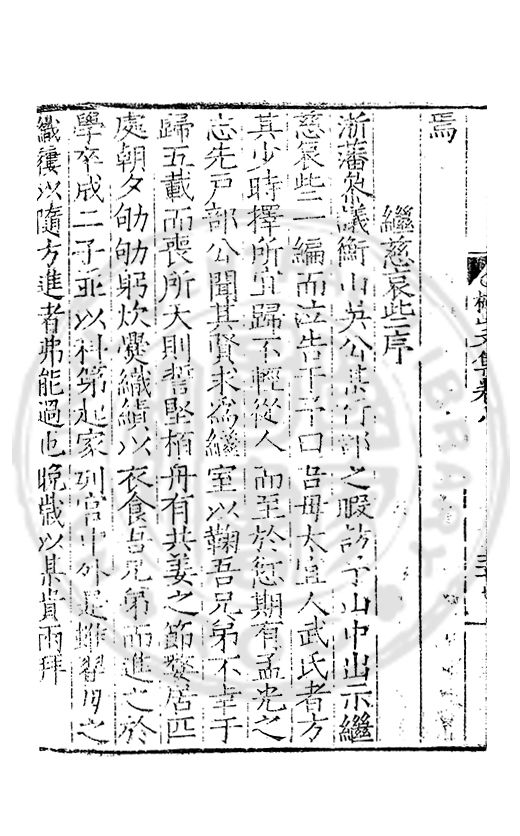 焉
繼慈哀些序
浙藩叅議衡山英公某行部之暇訪予山中出示繼
慈哀些二編而泣告于予曰吾母太宜人武氏者方
其少時擇所宜歸不輕從人而至於愆期有孟光之
志先戸部公聞其賢求爲繼室以鞠吾兄弟不幸于
歸五載而喪所天則誓堅栢舟有共姜之節嫠居匹
處朝夕劬劬躬炊爨織績以衣食吾兄弟而進之於
學卒成二子並以科第起家列官中外是雖翟母之
織屨以隨方進者弗能過也晚歲以某貴兩拜